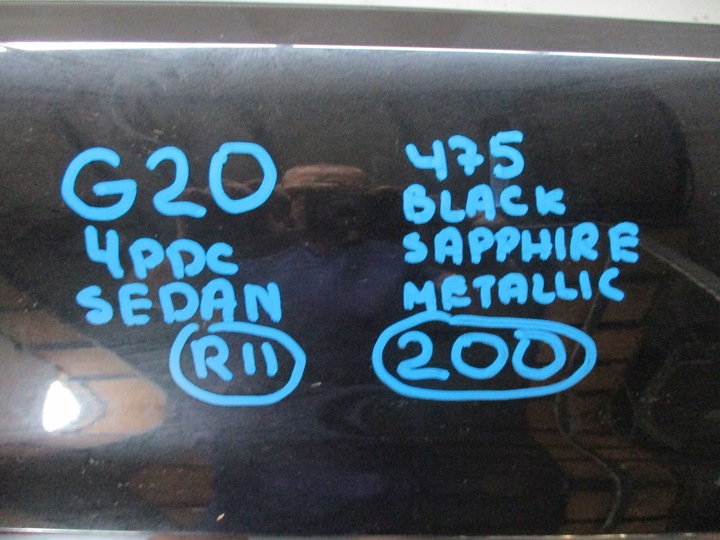 G20
4PDC
SEDAN
R11
475
BLACK
SAPPHIRE
METALLIC
200